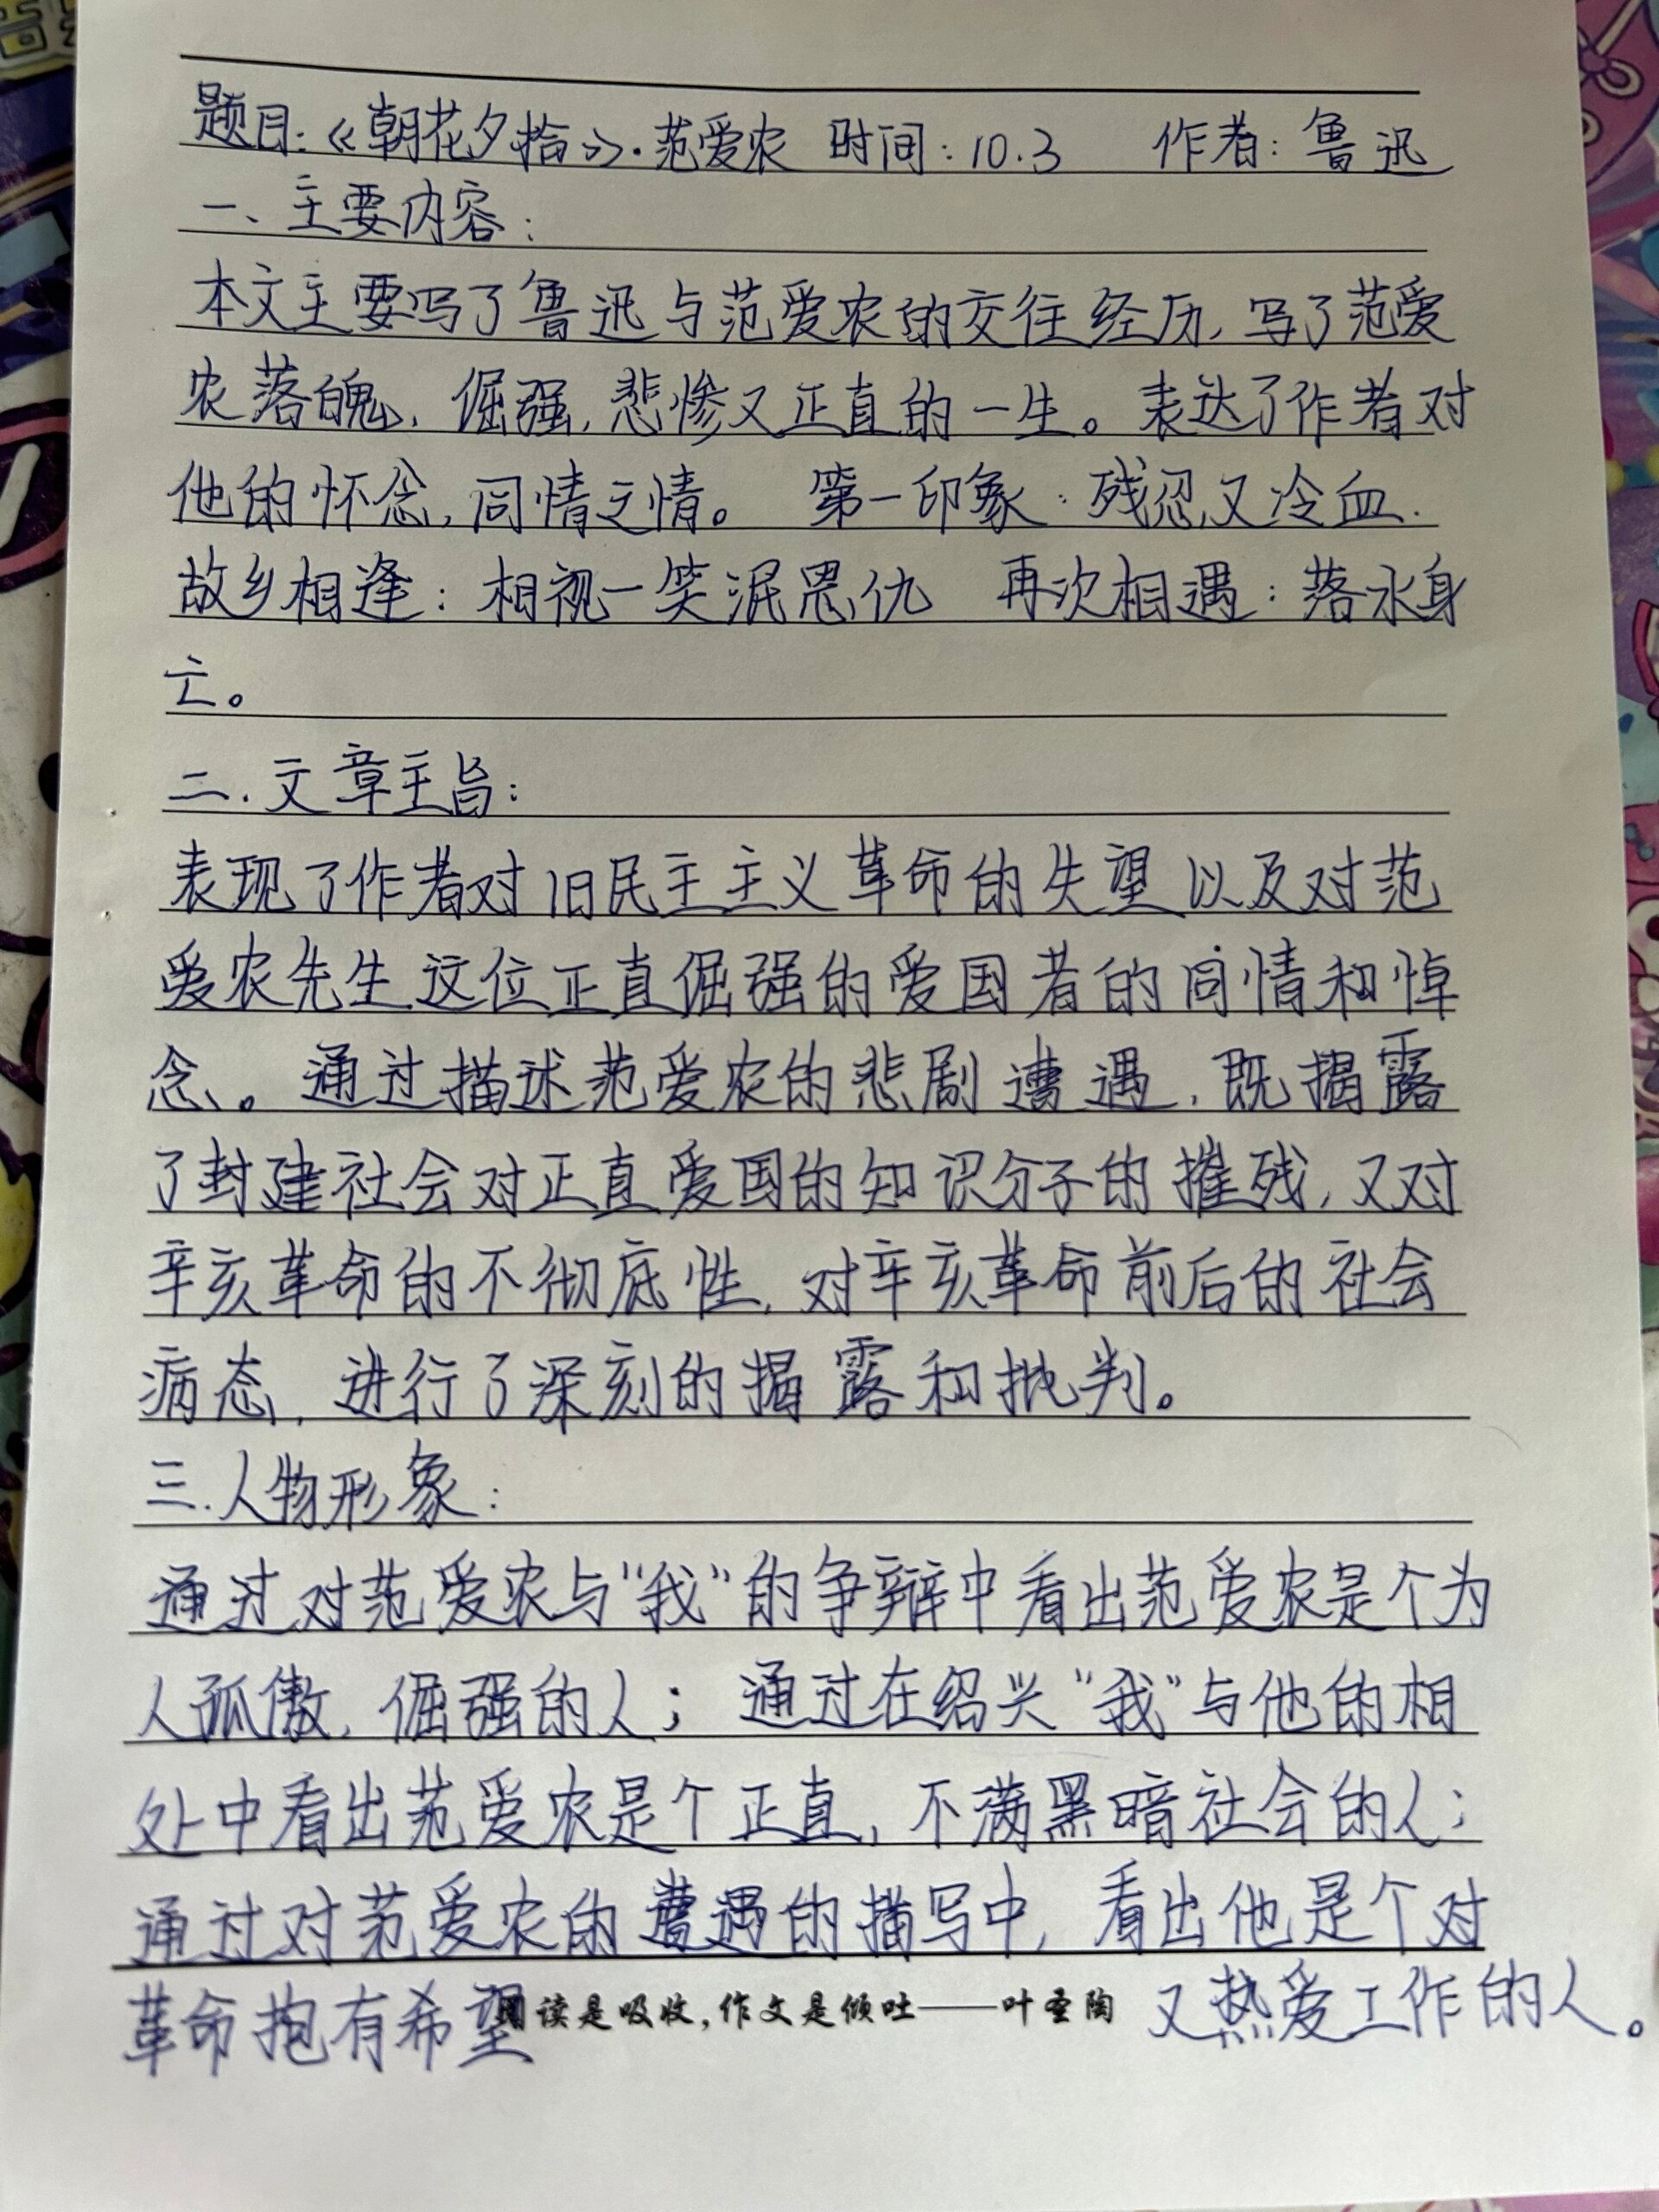 题目:《朝花夕拾》·范爱农 时间:10.3 作者:鲁迅
一、主要内容:
本文主要写了鲁迅与范爱农的交往经历,写了范爱
农落魄,倔强,悲惨又正直的一生。表达了作者对
他的怀念,同情之情。 第一印象:残忍又冷血.
故乡相逢:相视一笑泯恩仇 再次相遇:落水身
亡。
二.文章主旨:
表现了作者对旧民主主义革命的失望以及对范
爱农先生这位正直倔强的爱国者的同情和悼
念。通过描述范爱农的悲剧遭遇,既揭露
了封建社会对正直爱国的知识分子的摧残,又对
辛亥革命的不彻底性,对辛亥革命前后的社会
病态,进行了深刻的揭露和批判。
三.人物形象:
通过对范爱农与“我”的争辩中看出范爱农是个为
人孤傲,倔强的人;通过在绍兴“我”与他的相
处中看出范爱农是个正直,不满黑暗社会的人;
通过对范爱农的遭遇的描写中,看出他是个对
革命抱有希望 又热爱工作的人。
阅读是吸收,作文是倾吐——叶圣陶